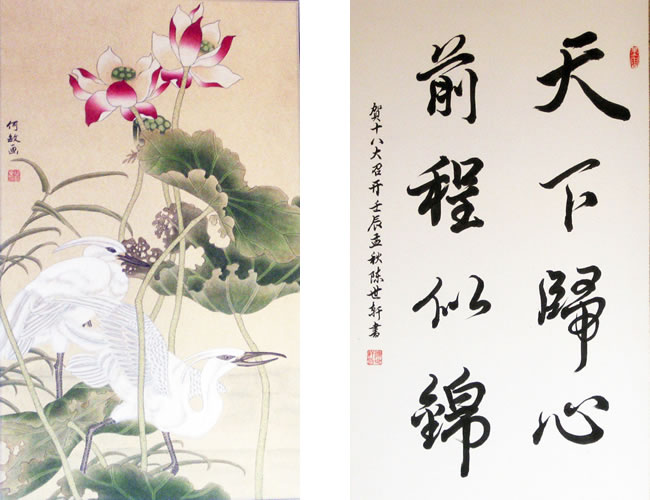 何敏画
天下歸心
前程似錦
賀十八大召开壬辰孟秋陈世軒書